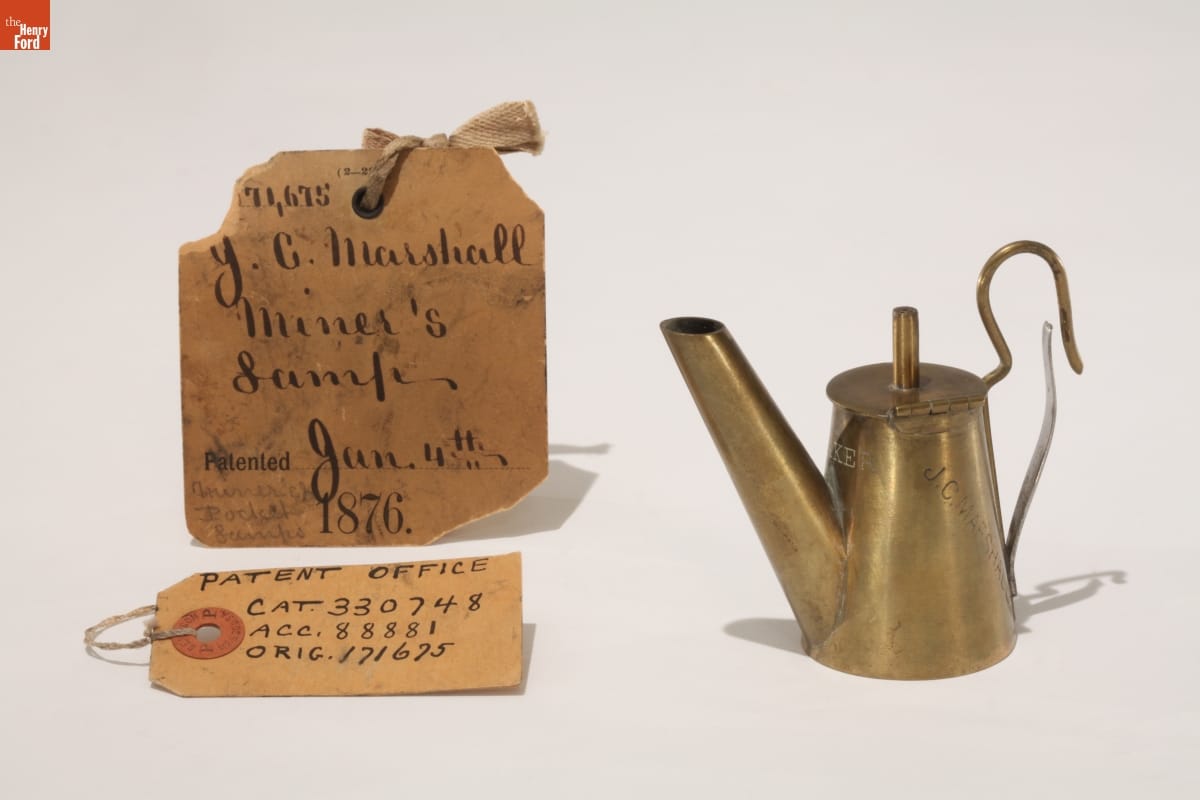 the
Henry
Ford
(2—2
171,675
J. C. Marshall
Miner's
Lamp
Patented Jan. 4th
1876.
Miner's
Pocket
Lamps
PATENT OFFICE
CAT. 330748
ACC. 88881
ORIG. 171675
KER
J. C. MARSHALL